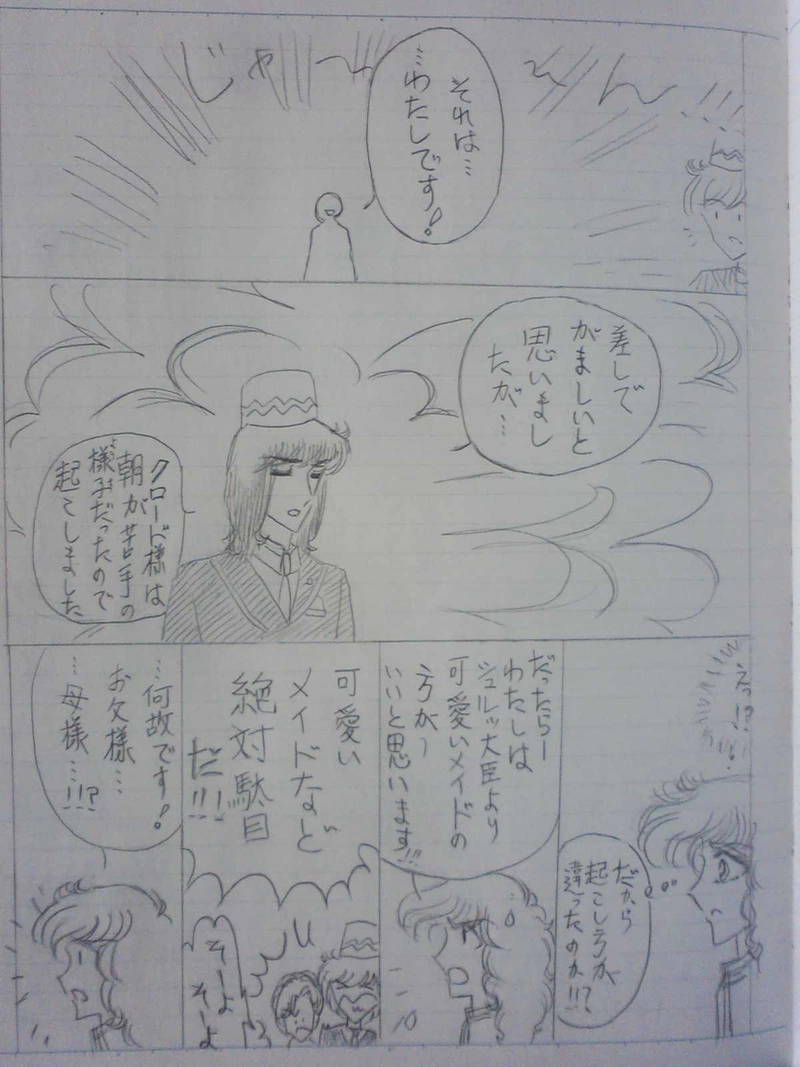 じゃーーん
それは…
…わたしです!
差しで
がましいと
思いまし
たが…
クロード様は
朝が苦手の
様みだったので
起こしました
えっ!?
だから
起こし方が
違ったのか!!?
だったらー
わたしは
シュルツ大臣より
可愛いメイドの
方がー
いいと思います!!!
可愛い
メイドなど
絶対駄目
だ!!!
そーよ
そーよ
…何故です!
お父様…
…母様…!!?